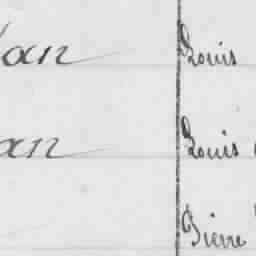 an Louis
an Louis
Pierre